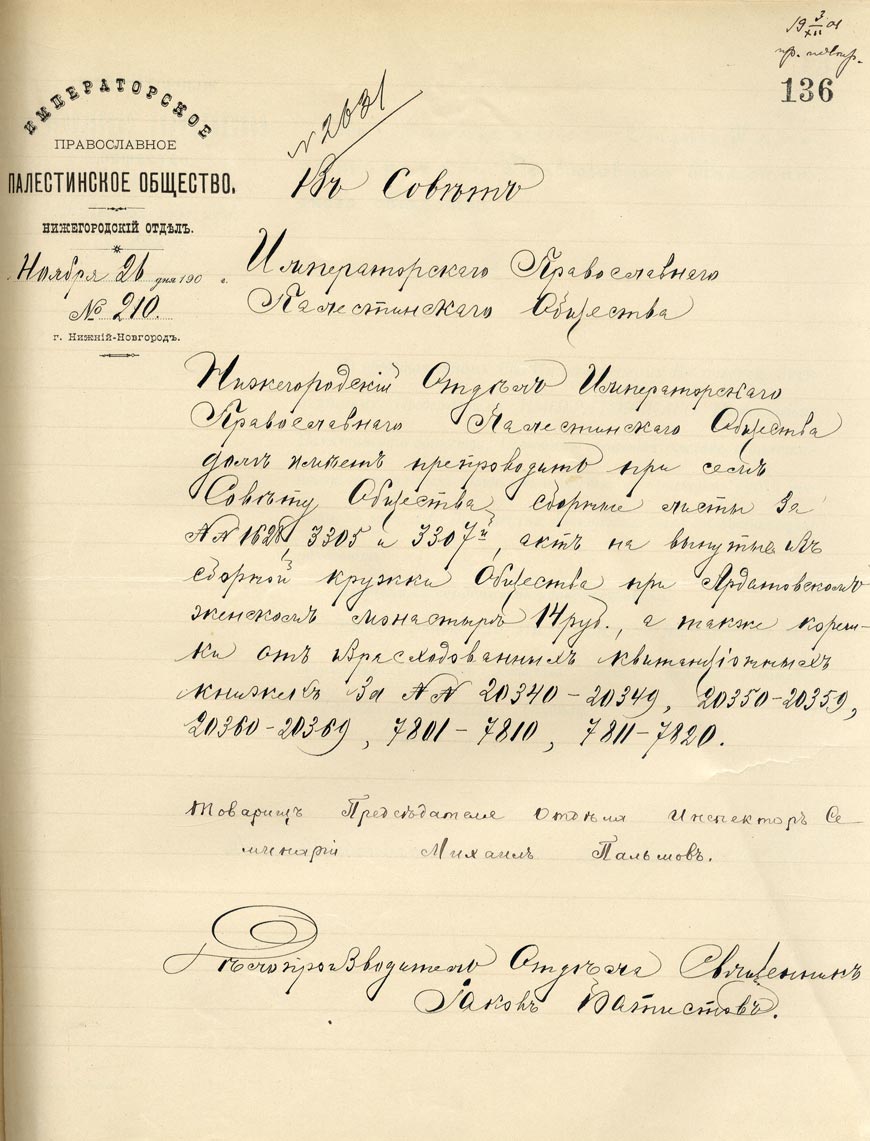 19 3/XII 01
136
ИМПЕРАТОРСКОЕ
ПРАВОСЛАВНОЕ
ПАЛЕСТИНСКОЕ ОБЩЕСТВО.
НИЖЕГОРОДСКІЙ ОТДѢЛЪ.
Ноября 26 дня 190 г.
№ 210.
г. Нижній-Новгородъ.
Въ Совѣтъ
Императорскаго Православнаго
Палестинскаго Общества
Нижегородскій Отдѣлъ Императорскаго
Православнаго Палестинскаго Общества
долгъ имѣетъ препроводить при семъ
Совѣту Общества сборные листы за
№№ 1628, 3305 и 3307й, актъ на вынутые изъ
сборной кружки Общества при Ардатовскомъ
женскомъ монастырѣ 14 руб., а также кореш-
ки отъ израсходованныхъ квитанціонныхъ
книжекъ за №№ 20340-20349, 20350-20359,
20360-20369, 7801-7810, 7811-7820.
Товарищъ Предсѣдателя Отдѣла Инспекторъ Се-
минаріи Михаилъ Пальмовъ.
Дѣлопроизводитель Отдѣла Священникъ
Іаковъ Батистовъ.